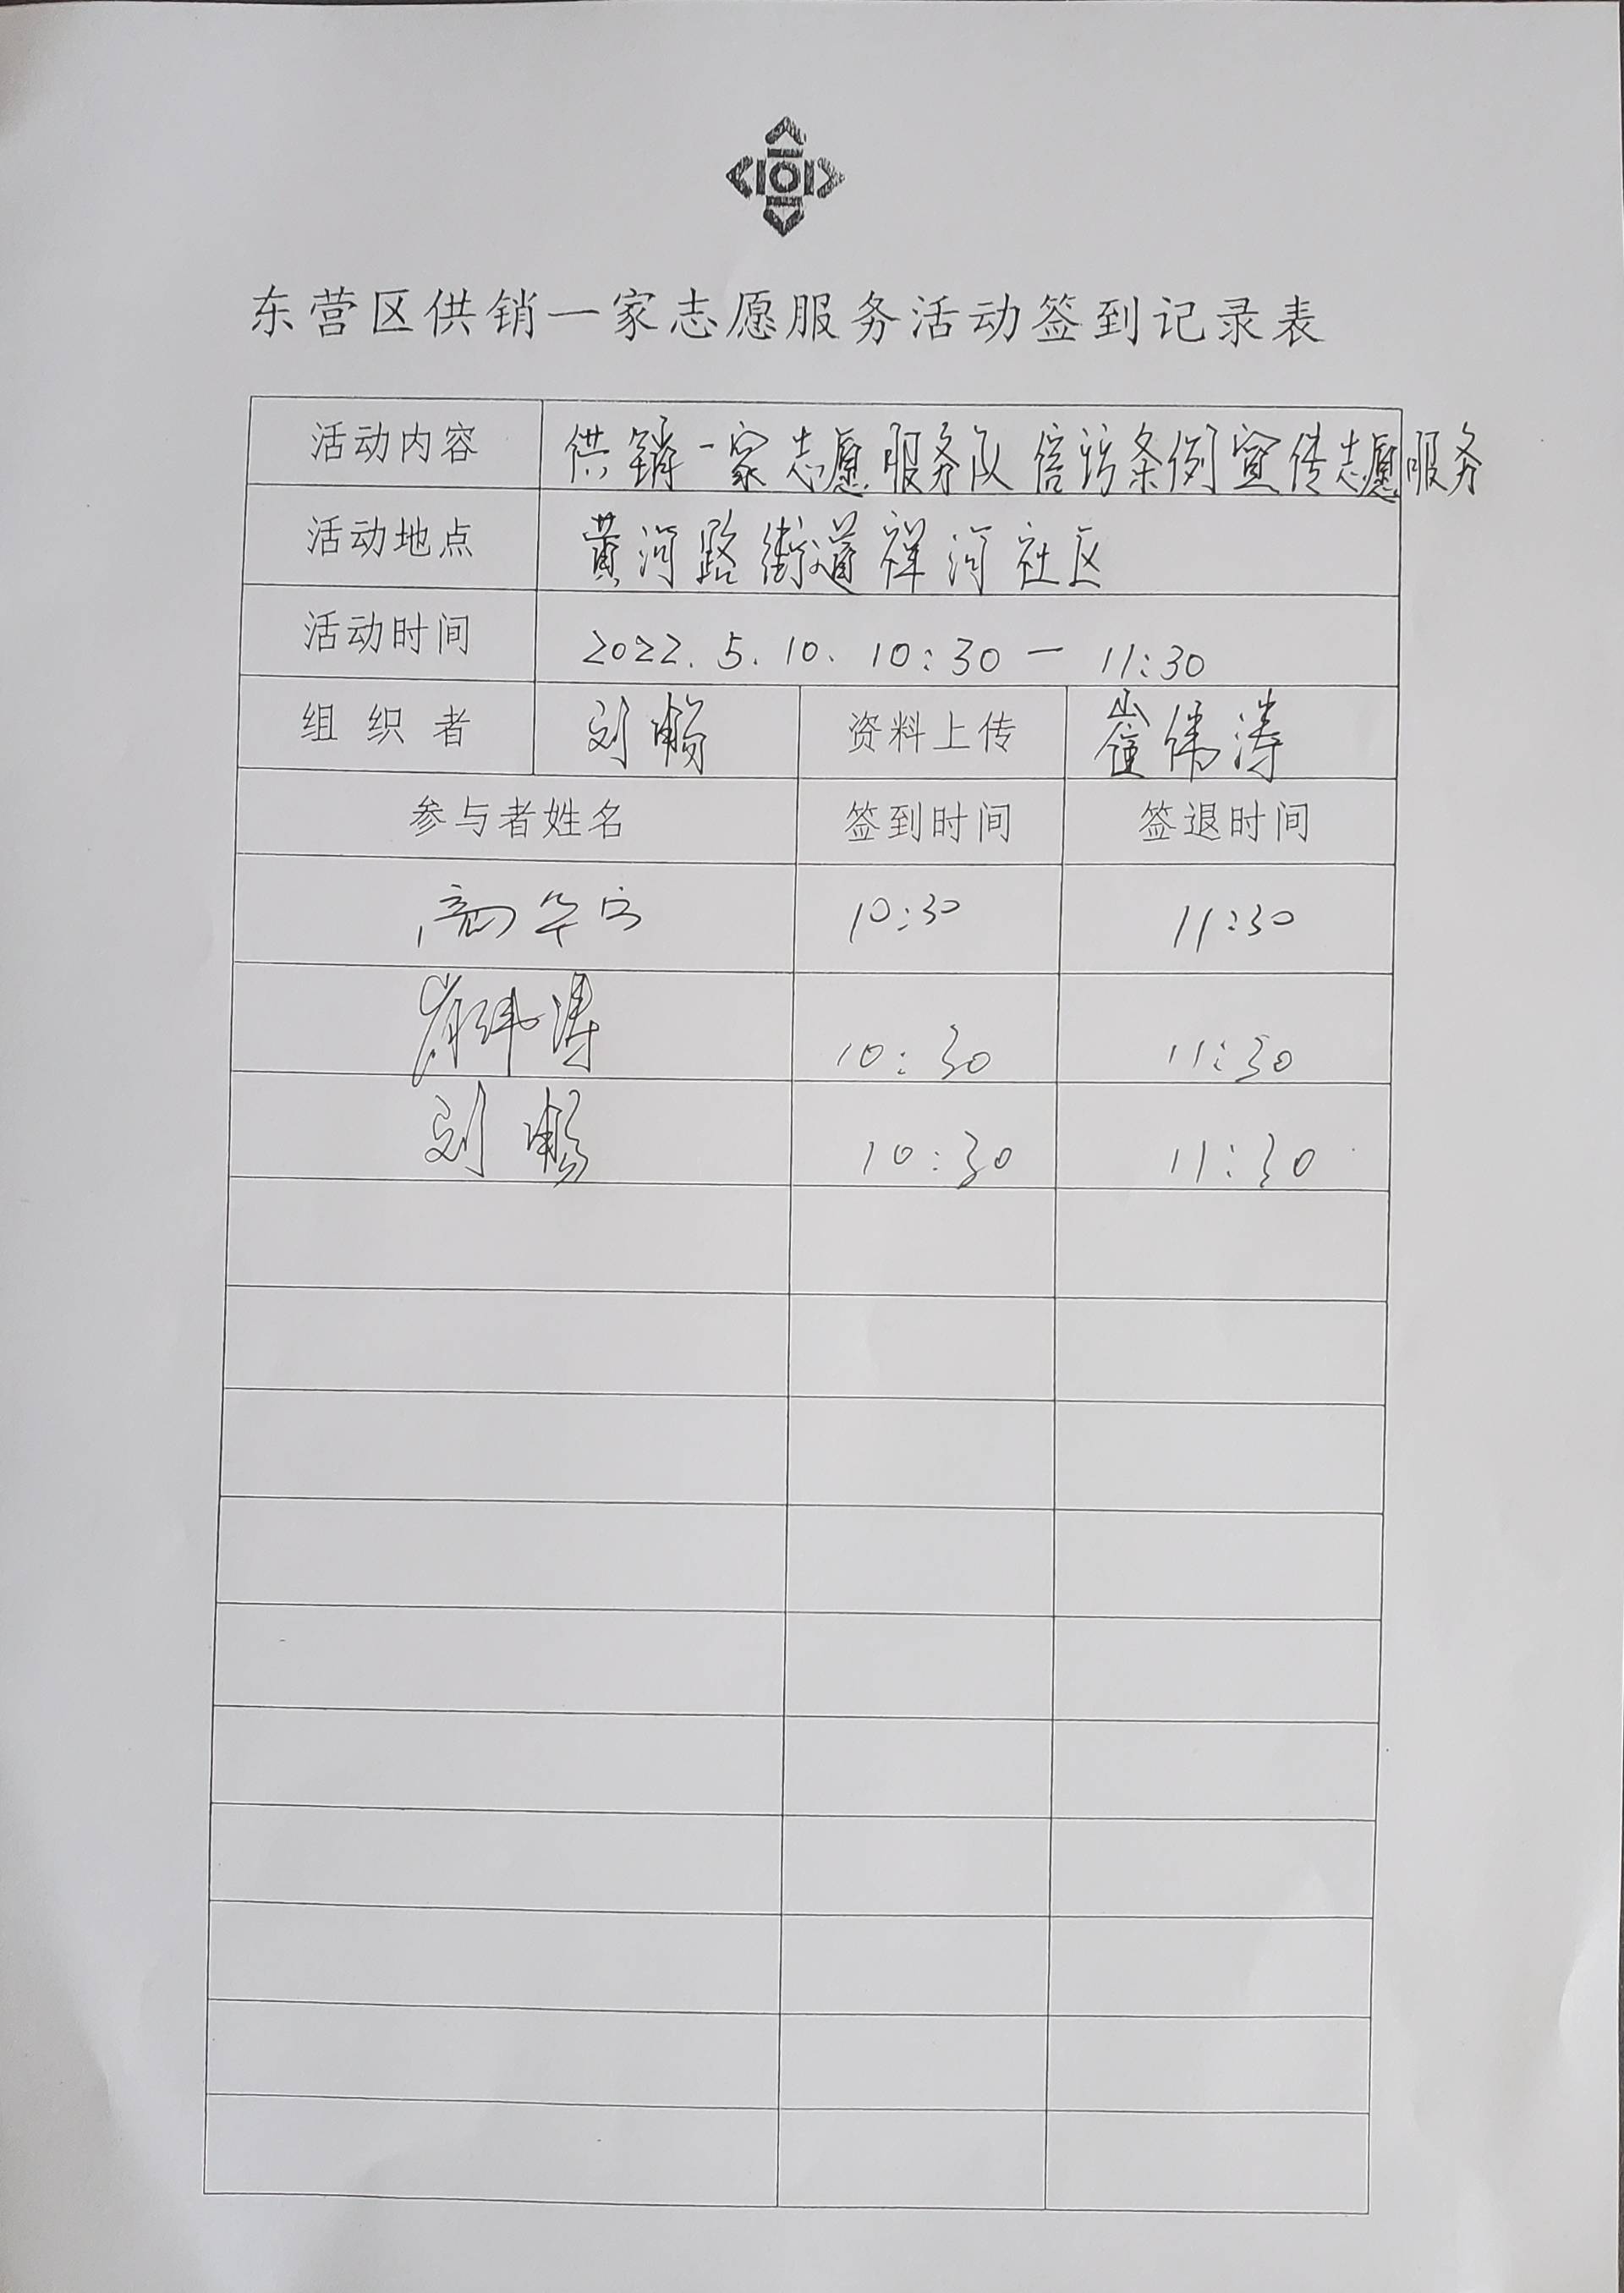 东营区供销一家志愿服务活动签到记录表
活动内容 供销一家志愿服务队信访条例宣传志愿服务
活动地点 黄河路街道祥河社区
活动时间 2022.5.10. 10:30 — 11:30
组织者 刘畅 资料上传 崔伟涛
参与者姓名 签到时间 签退时间
10:30 11:30
崔伟涛 10:30 11:30
刘畅 10:30 11:30